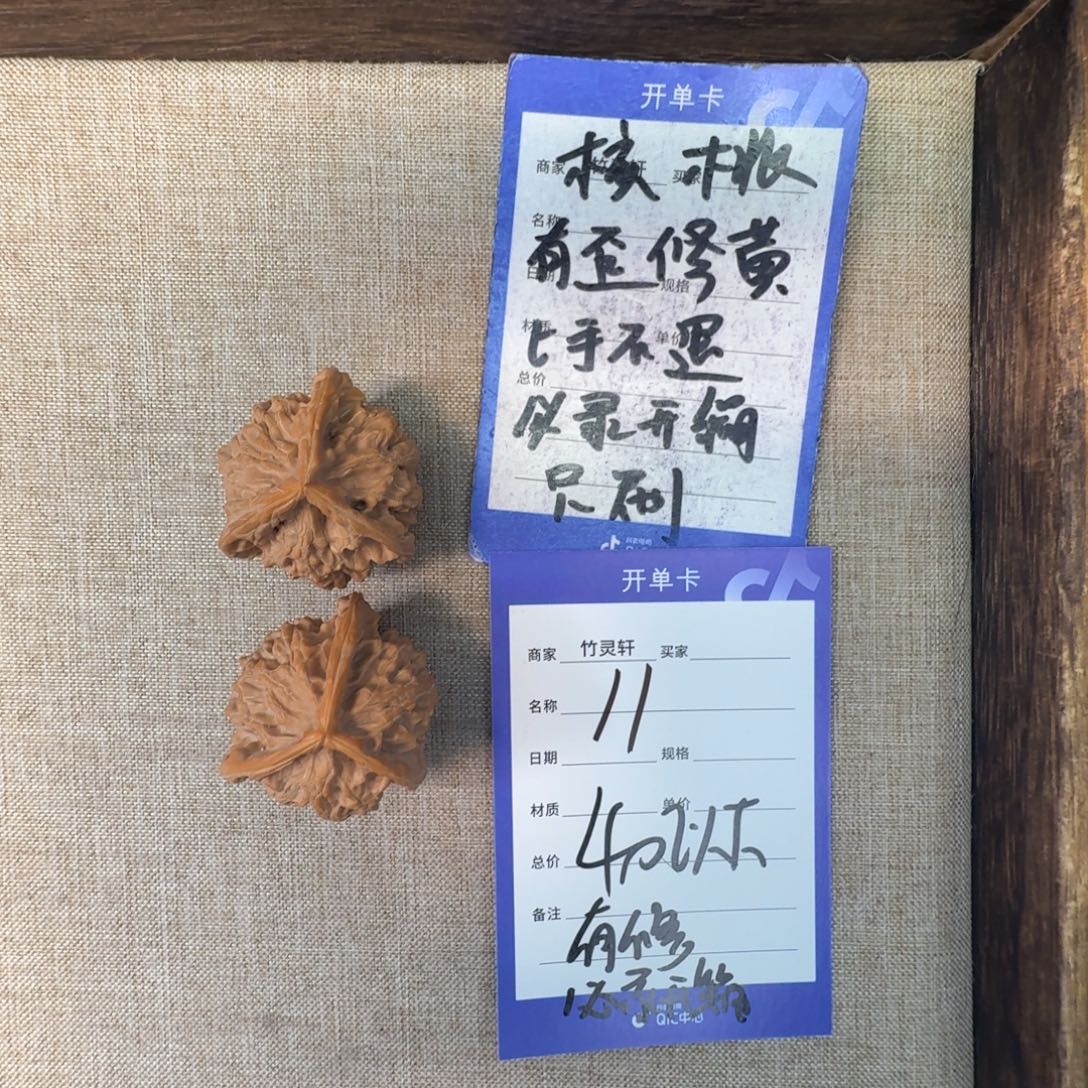 开单卡
核桃
商家 竹灵轩 买家
名称
有歪修黄
日期 规格
材质 单价
上手不退
总价
必录开编
只刷
开单卡
商家 竹灵轩 买家
名称
11
日期 规格
材质 单价
总价
备注
有修
QIC中心